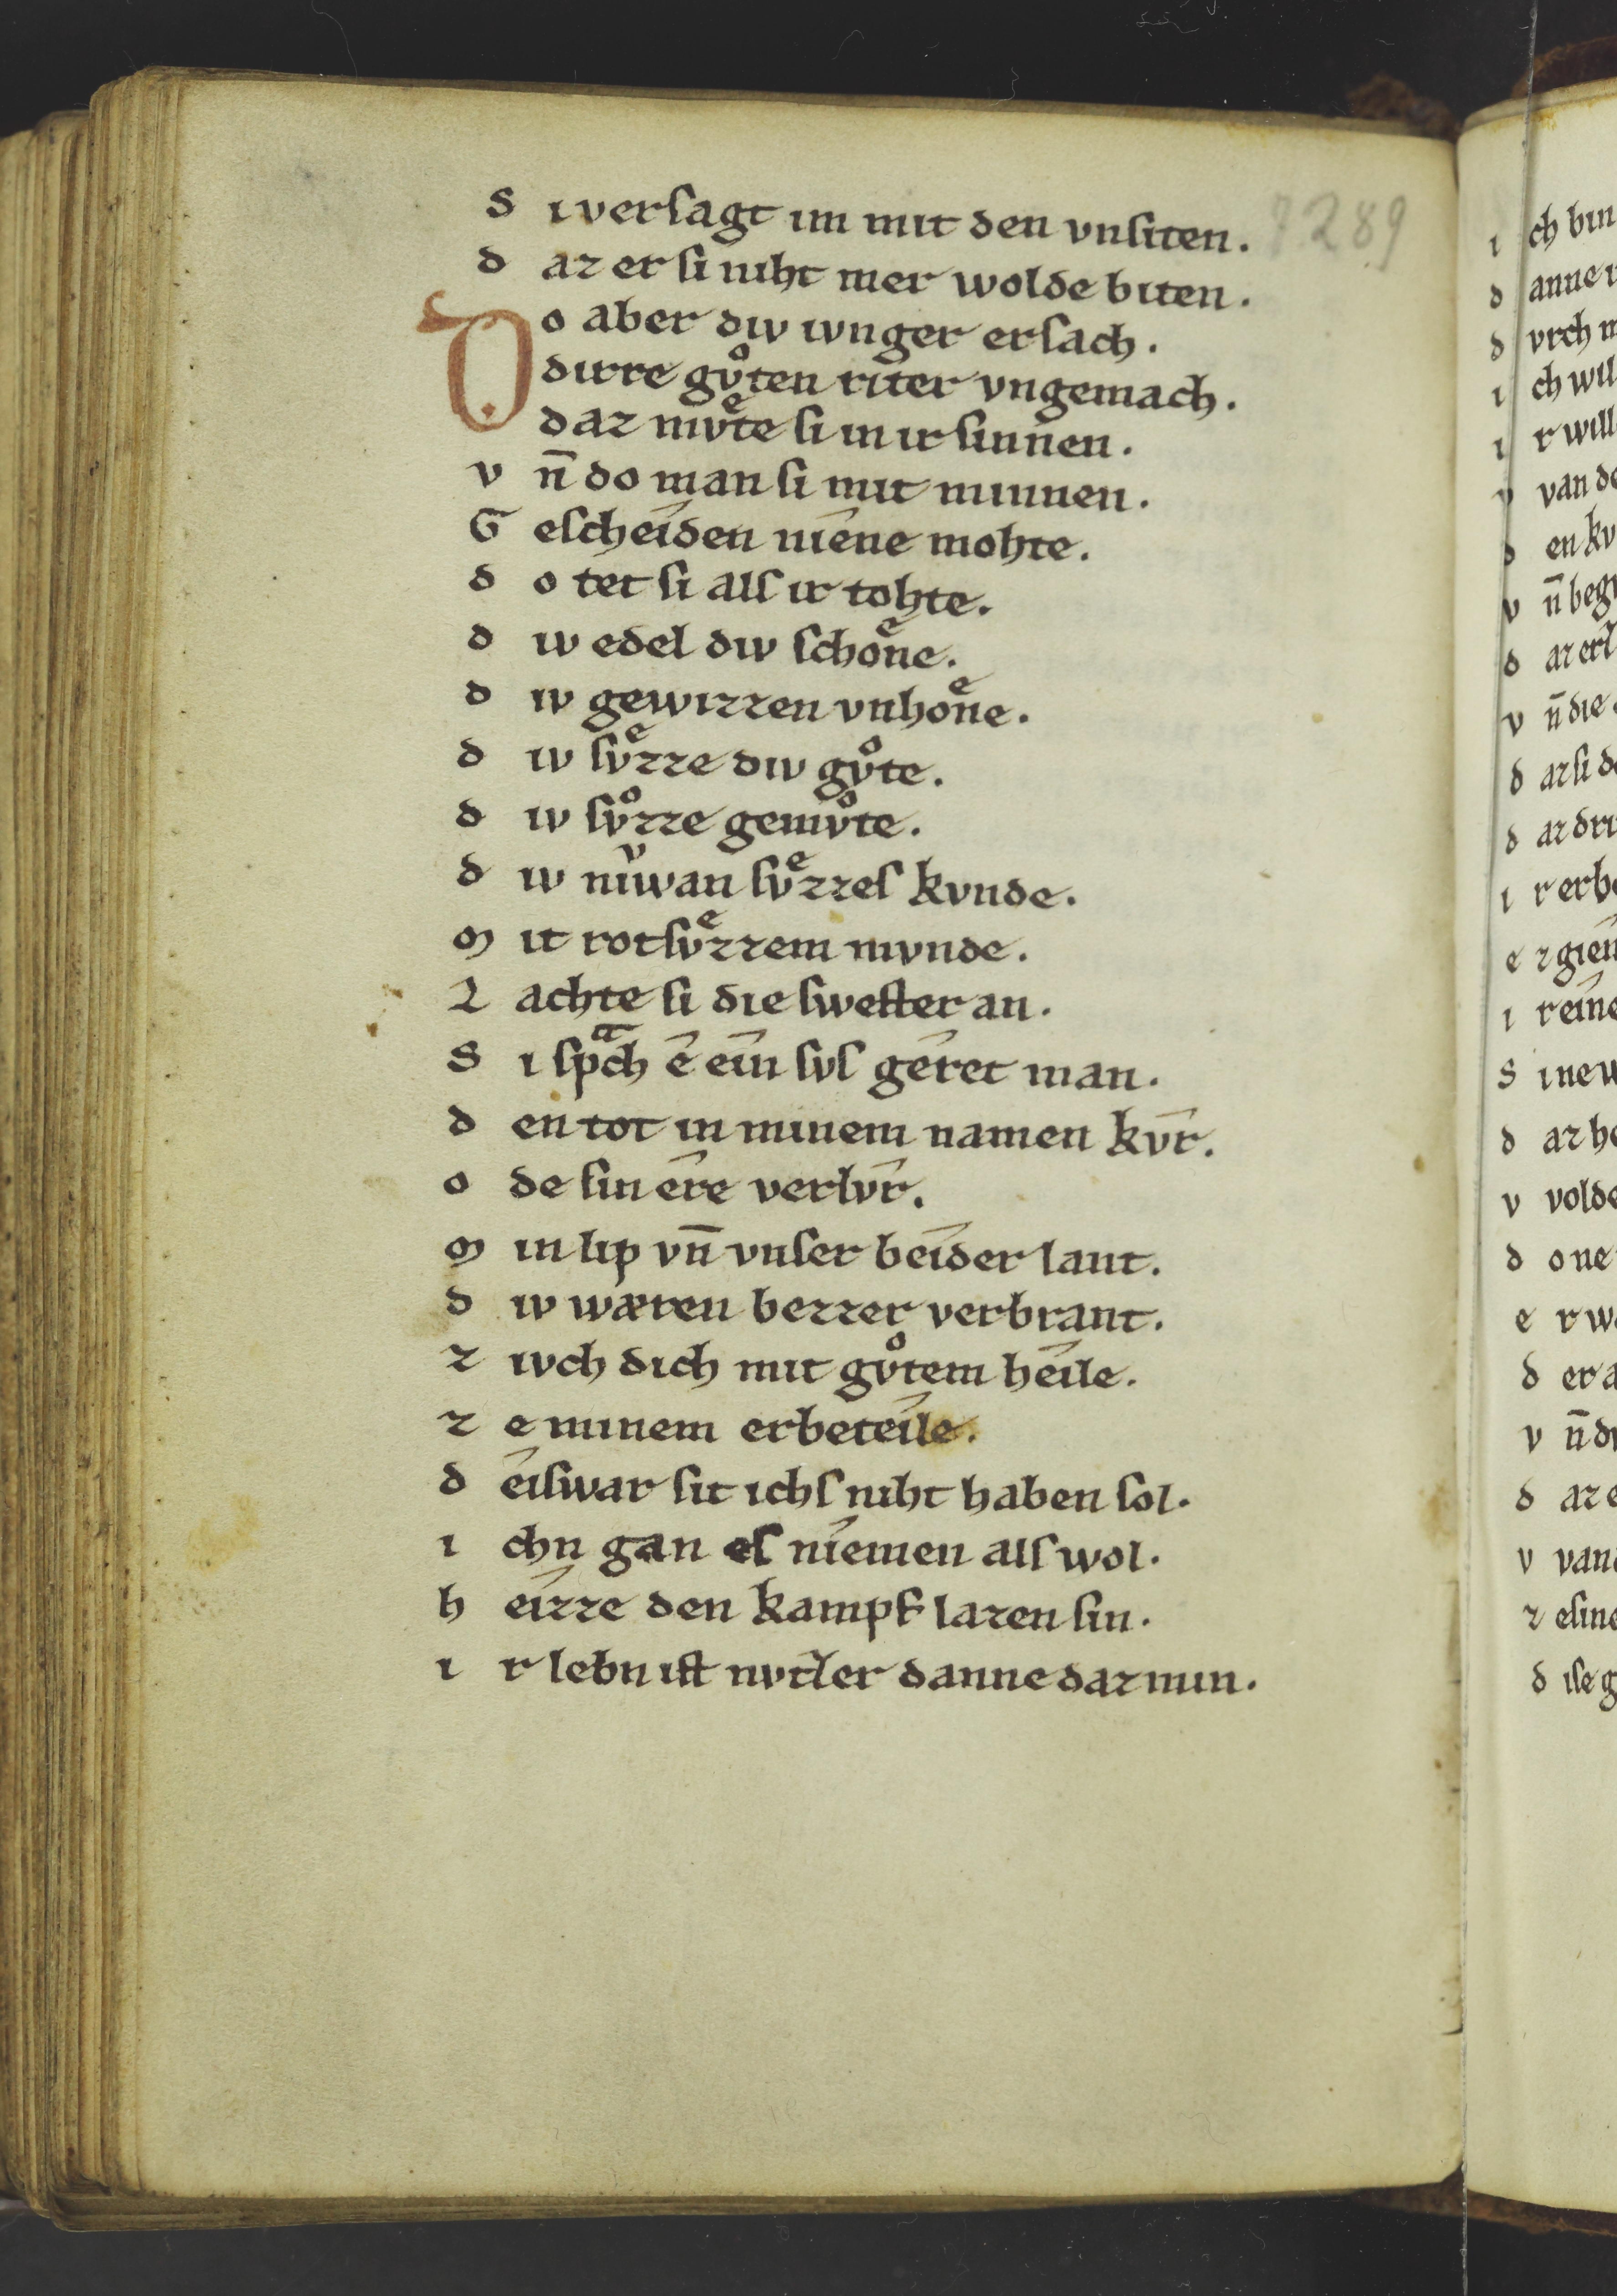 S iverſagt im mit den vnſiten. 7289
d az er ſi niht mer wolde biten.
Do aber div ivnger erſach.
dirre gvͦten riter vngemach.
daz mvͤte ſi in ir ſinnen.
v n̄ do man ſi mit minnen.
G eſcheîden nîene mohte.
d o tet ſi alſ ir tohte.
d iv edel div ſchoͤne.
d iv gewizzen vnhoͤne.
d iv ſvͤzze div gvͦte.
d iv ſvͦzze gemvͦte.
d iv nivͮwan ſvͤzzeſ kvnde.
m it rotſvͤzzem mvnde.
L achte ſi die ſweſter an.
S i ſpᵃch ê eîn ſvſ gêret man.
d en tot in minem namen kv̂r.
o de ſin êre verlv̂r.
m in lip vn̄ vnſer beîder lant.
d iv wæren bezzer verbrant.
z ivch dich mit gvͦtem heîle.
z e minem erbeteîle.
d êiſwar ſit ichſ niht haben ſol.
i chn gan eſ nîemen alſ wol.
h eîzze den kampf lazen ſin.
i r lebn iſt nvtzler danne daz min.
i ch bin
d anne
d vrch m
i ch wil
i r will
v van de
d en kv
v n̄ beg
d az er
v n̄ die
d az ſi d
d az drî
i r erb
e z gîen
i r eîne
S i ne
d az h
v volde
d o ne
e r w
d er a
v n̄ d
d az e
v van
z e ſine
d iſe g